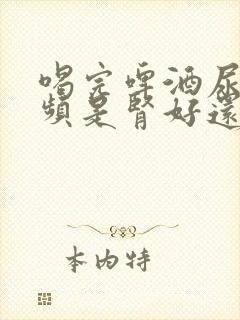 喝完啤酒尿
頻是腎好還
本内特